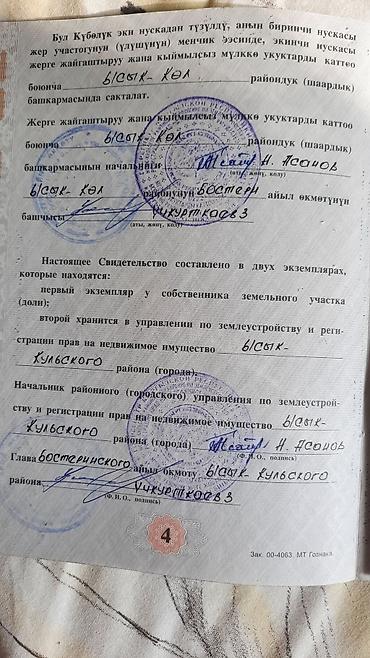 Бул Күбөлүк эки нускадан түзүлдү, анын биринчи нускасы
жер участогунун (үлүшүнүн) менчик ээсинде, экинчи нускасы
жерге жайгаштыруу жана кыймылсыз мүлккө укуктарды каттоо
боюнча ЫСЫК-КӨЛ райондук (шаардык)
башкармасында сакталат.
Жерге жайгаштыруу жана кыймылсыз мүлккө укуктарды каттоо
боюнча ЫСЫК-КӨЛ райондук (шаардык)
башкармасынын начальниги Н. Асанов
(аты, жөнү, колу)
ЫСЫК-КӨЛ районунун Бостери айыл өкмөтүнүн
башчысы Учкурткаев З
(аты, жөнү, колу)
Настоящее Свидетельство составлено в двух экземплярах,
которые находятся:
первый экземпляр у собственника земельного участка
(доли);
второй хранится в управлении по землеустройству и реги-
страции прав на недвижимое имущество ЫСЫК-
Кульского района (города).
Начальник районного (городского) управления по землеустрой-
ству и регистрации прав на недвижимое имущество ЫСЫК-
Кульского района (города) Н. Асанов
(Ф.И.О., подпись)
Глава Бостеринского айыл окмоту ЫСЫК-Кульского
района Учкурткаев З
(Ф.И.О., подпись)
4
Зак. 00-4063. МТ Гознака.